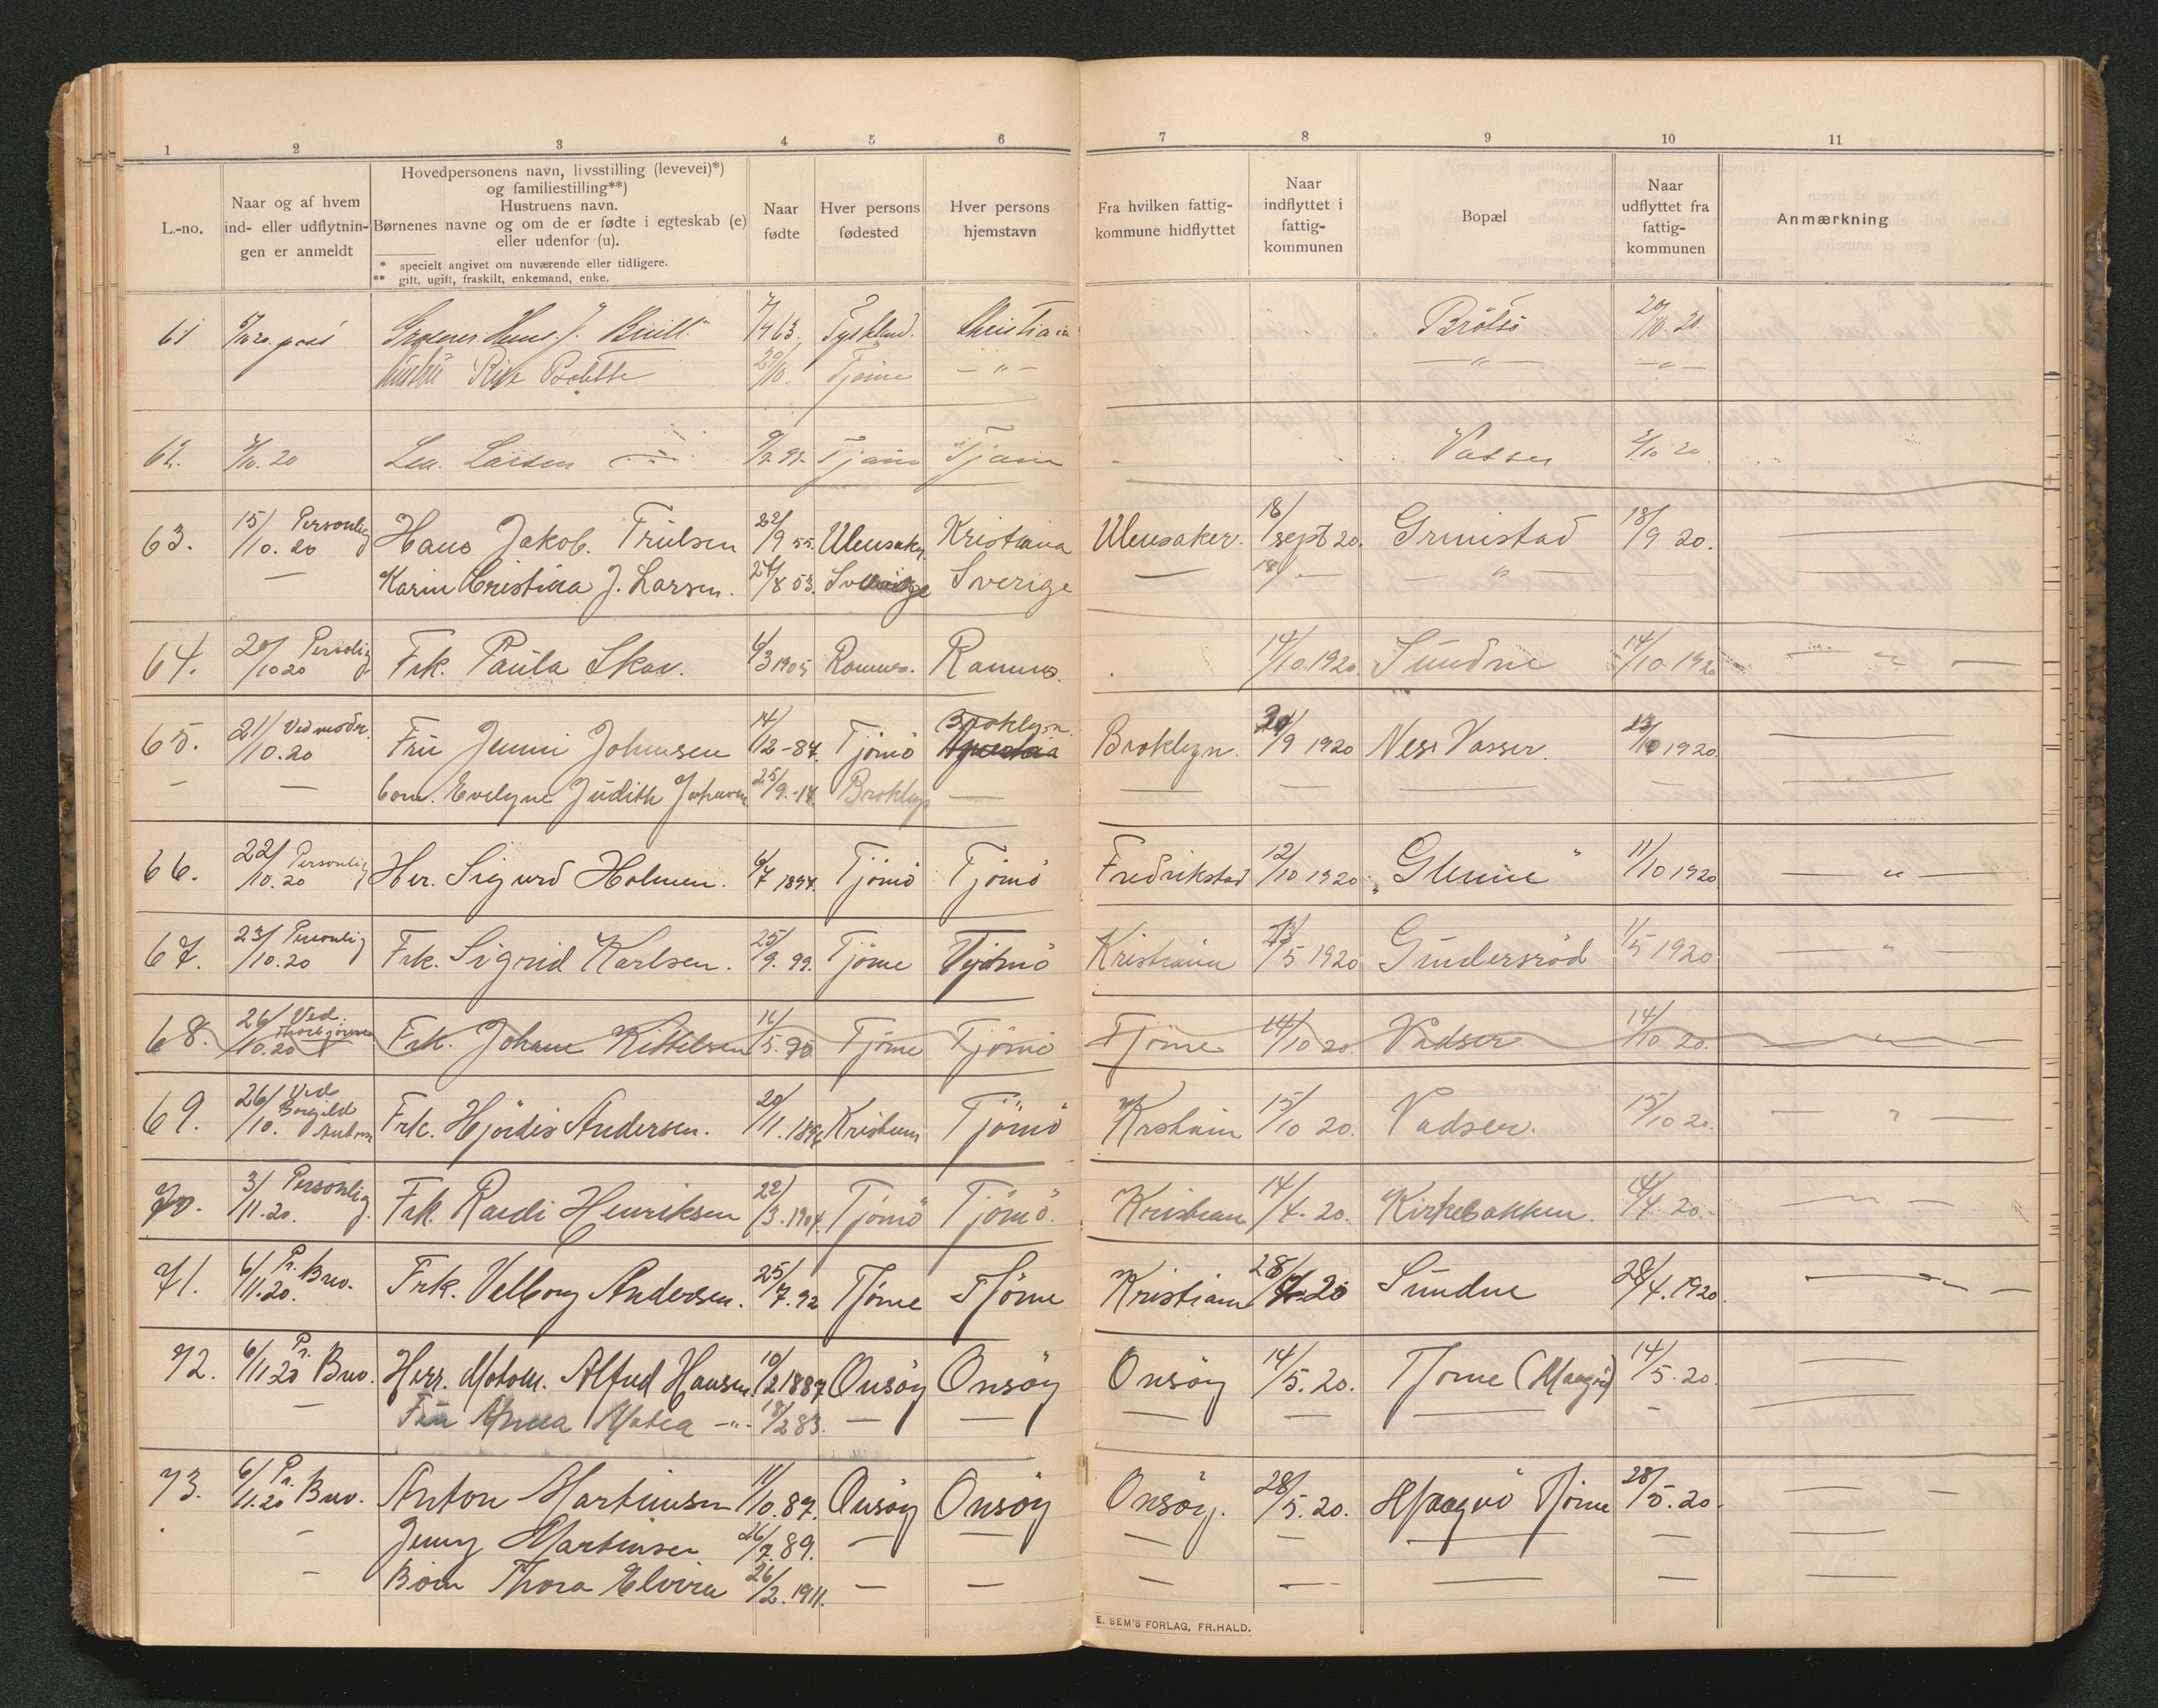 1 2 3 4 5 6 7 8 9 10 11
L.-no.
Naar og af hvem
ind- eller udflytnin-
gen er anmeldt
Hovedpersonens navn, livsstilling (levevei)*)
og familiestilling**)
Hustruens navn.
Børnenes navne og om de er fødte i egteskab (e)
eller udenfor (u).
* specielt angivet om nuværende eller tidligere.
** gift, ugift, fraskilt, enkemand, enke.
Naar
fødte
Hver persons
fødested
Hver persons
hjemstavn
Fra hvilken fattig-
kommune hidflyttet
Naar
indflyttet i
fattig-
kommunen
Bopæl
Naar
udflyttet fra
fattig-
kommunen
Anmærkning
61 Tyskland. Brötsö 20/10. 20.
Tjöme — " — — " — — " —
62. Larsen Vasser 2/10 20
63. 15/10.20 Personlig Hans Jakob. Trulsen 22/9 55. Ullensaker Kristiania Ullensaker. 18/sept 20. Grimstad 18/9 20. —
— Karin Cristina J. Larsen. 24/8 53. Sverige Sverige — 18/ — — " — —
64. 20/10 20 Personlig Frk. Paula Skav. 6/3 1905 Ramnes. Ramnes. 14/10.1920. Sundne 14/10.1920 — " —
65. 21/10.20 Ved moder. Fru Jenni Johnsen 14/12-84. Tjömö Broklyn. Broklyn. 30/9 1920 Nes. Vasser. 23/10 1920. —
— — Evelyne Judith Johnsen 25/9.-14. Broklyn — — — — — —
66. 22/10.20 Personlig Her. Sigurd Holmen. 6/7 1897. Tjömö Tjömö Fredrikstad 12/10 1920. "Glenne" 11/10 1920 — " —
67. 23/10.20 Personlig Frk. Sigrid Karlsen. 25/9. 99. Tjöme Tjömö Kristiania 1/5 1920 Gundersröd 1/5 1920. — " —
68. 26/10.20 Ved. Frk. Johane Kittelsen 16/5. Tjöme Tjömö Tjöme 14/10 20. Vadser 14/10. 20. — " —
69. 26/10. Ved Borgild Frk. Hjördis Andersen. 20/11. Kristiania Tjömö Kristiania 15/10 20. Vadser. 15/10 20. — " —
70. 3/11.20. Personlig. Frk. Randi Henriksen 22/3.1904. Tjömö Tjömö. Kristian 14/4. 20. Kirkebakken. 14/4. 20. — " —
71. 6/11.20. Pr. Brev. Frk. Valborg Andersen. 25/7.92 Tjöme Tjöme Kristiania 28/4 20 Sundne 28/4.1920. — " —
72. 6/11.20 Pr. Brev. Herr. Alfred Hansen 10/2 1887. Onsöy Onsöy Onsöy 14/5. 20. Tjöme (Magö) 14/5. 20. —
— Fru Anna — " — 18/2 83. — — — — — — —
73. 6/11.20 Pr. Brev. Anton Martinsen 11/10.87. Onsöy Onsöy Onsöy. 28/5. 20. Magnö Tjöme 28/5. 20. — —
— Jenny Martinsen 26/7.89. — — — — — — —
— Börn Thora Elvira 26/2. 1911. — — — — — — —
E. SEM'S FORLAG, FR.HALD.